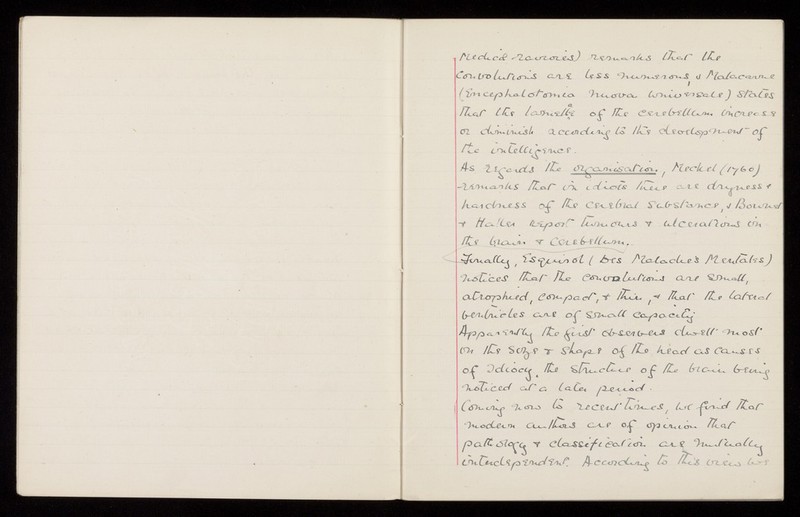 remarks that the
convolutions are less numerous, & Malacarne
(Encephalotomia nuova universale) states
that the lamellæ of the cerebellum increase
or diminish according to the development of
the intelligence.
As regards the organisation, Meckel (1760)
remarks that in idiots there are dryness &
hardness of the cerebral substance, & Bonnet
& Haller report tumours & ulcerations in
the brain & cerebellum.
Finally, Esquirol (Des Maladies Mentales)
notices that the convolutions are small,
atrophied, compact, & thin, & that the lateral
ventricles are of small capacity
Apparently the first observers dwelt most
on the size & shape of the head as causes
of Idiocy, the structure of the brain being
noticed at a later period.
Coming now to recent times, we find that
modern authors are of opinion that
pathology & classification are mutually
interdependent. According to this view we